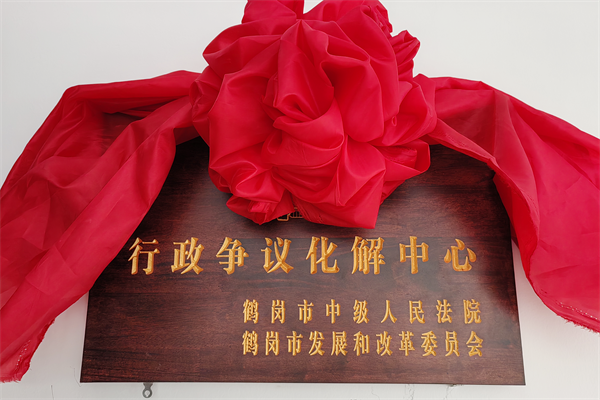 行政争议化解中心
鹤岗市中级人民法院
鹤岗市发展和改革委员会